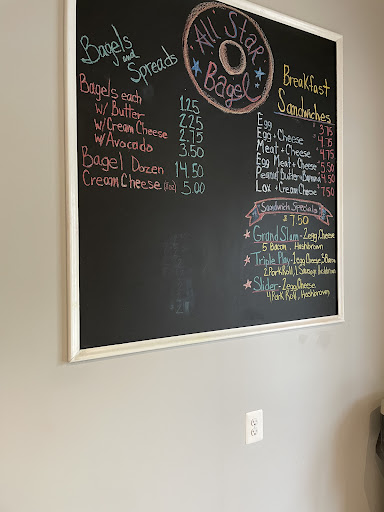 All Star
Bagel
Bagels
and
Spreads
Bagels each 1.25
w/ Butter 2.25
w/ Cream Cheese 2.75
w/ Avocado 3.50
Bagel Dozen 14.50
Cream Cheese (8oz) 5.00
Breakfast
Sandwiches
Egg $ 3.75
Egg + Cheese $ 4.75
Meat + Cheese $ 4.75
Egg Meat + Cheese 5.50
Peanut Butter + Banana 4.50
Lox + Cream Cheese 7.50
Sandwich Specials
$ 7.50
Grand Slam - 2 egg, Cheese
5 Bacon, Hashbrown
Triple Play - 2 egg Cheese, 3 Bacon
2 Pork Roll, 1 Sausage, hashbrown
Slider - 2 egg Cheese
4 Pork Roll, Hashbrown